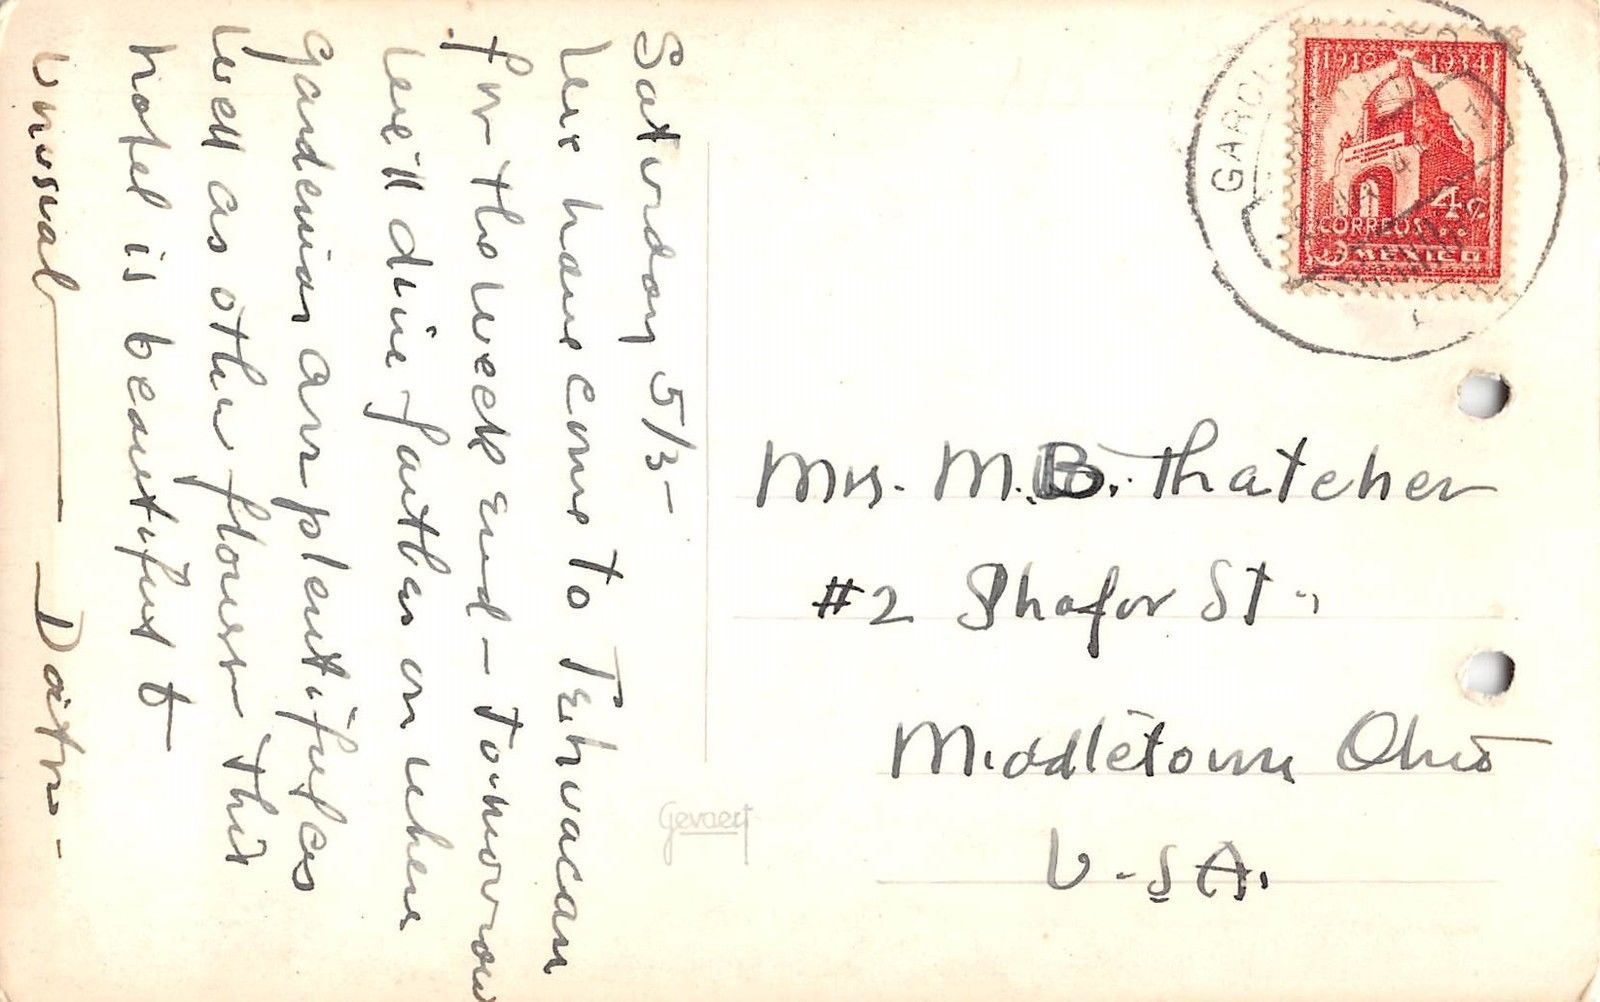 Saturday 5/3-
We have come to Tehuacan
for the week end - Tomorrow
we'll dine farther on where
Gardenias are plentiful as
well as other flowers This
hotel is beautiful &
unusual
1910 1934
4¢
CORREOS
MEXICO
GARCI
Mrs. M. B. Thatcher
#2 Shafor St.
Middletown Ohio
U.S.A.
Gevaert